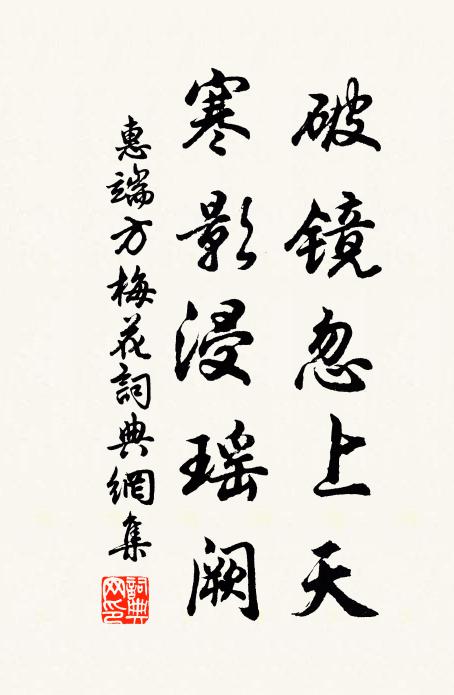 破镜忽上天
寒影浸瑶阙
惠端方梅花詞典網集
詞典网印